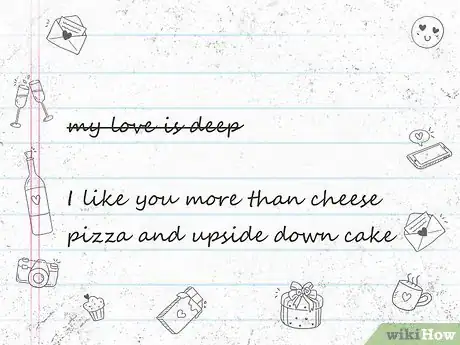 my love is deep
I like you more than cheese
pizza and upside down cake
wikiHow